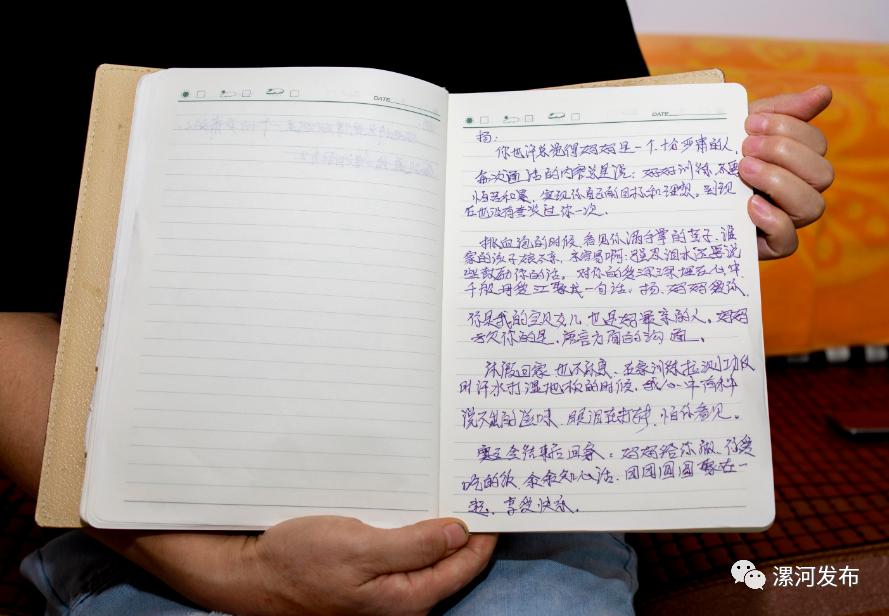 DATE
DATE
扬：
你也许总觉得妈妈是一个十分严肃的人，
每次通话的内容总是说：好好训练，不要
怕苦和累，实现你自己的目标和理想。到现
在也没有表说过你一次。
排血泡的时候，看见你满手掌的茧子，谁
家的孩子娘不亲，末容易啊：强忍泪水还要说
些鼓励你的话，对你的爱深深埋在心中
千般母爱汇聚成一句话：扬，妈妈爱你。
你是我的宝贝女儿，也是妈最亲的人。妈妈
亏欠你的是，语言方面的沟通。
休假回家，也不休息，在家训练拉测功仪
用汗水打湿地板的时候，我心中有种
说不出的滋味，眼泪在打转，怕你看见。
赛会结束后回来，妈妈给你做，你爱
吃的饭，余余知心话，团团圆圆聚在一
起，享受快乐。
漯河发布